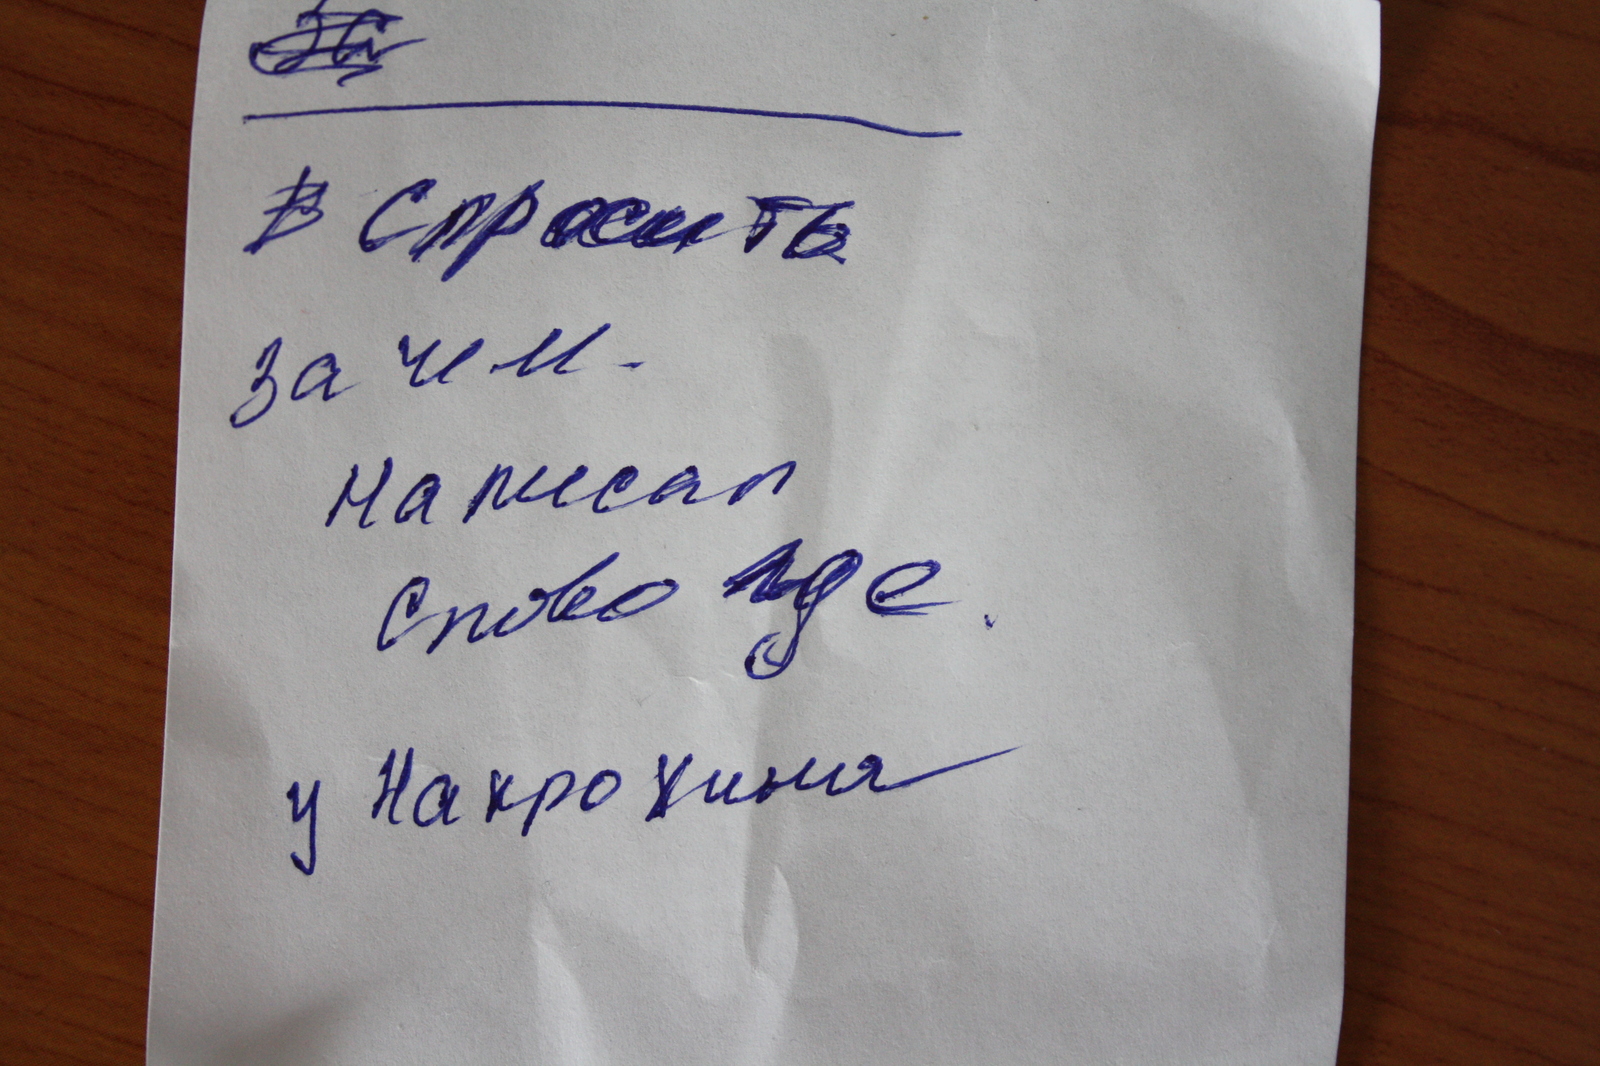 Спросить
зачем.
написал
слово где.
у Накрохина